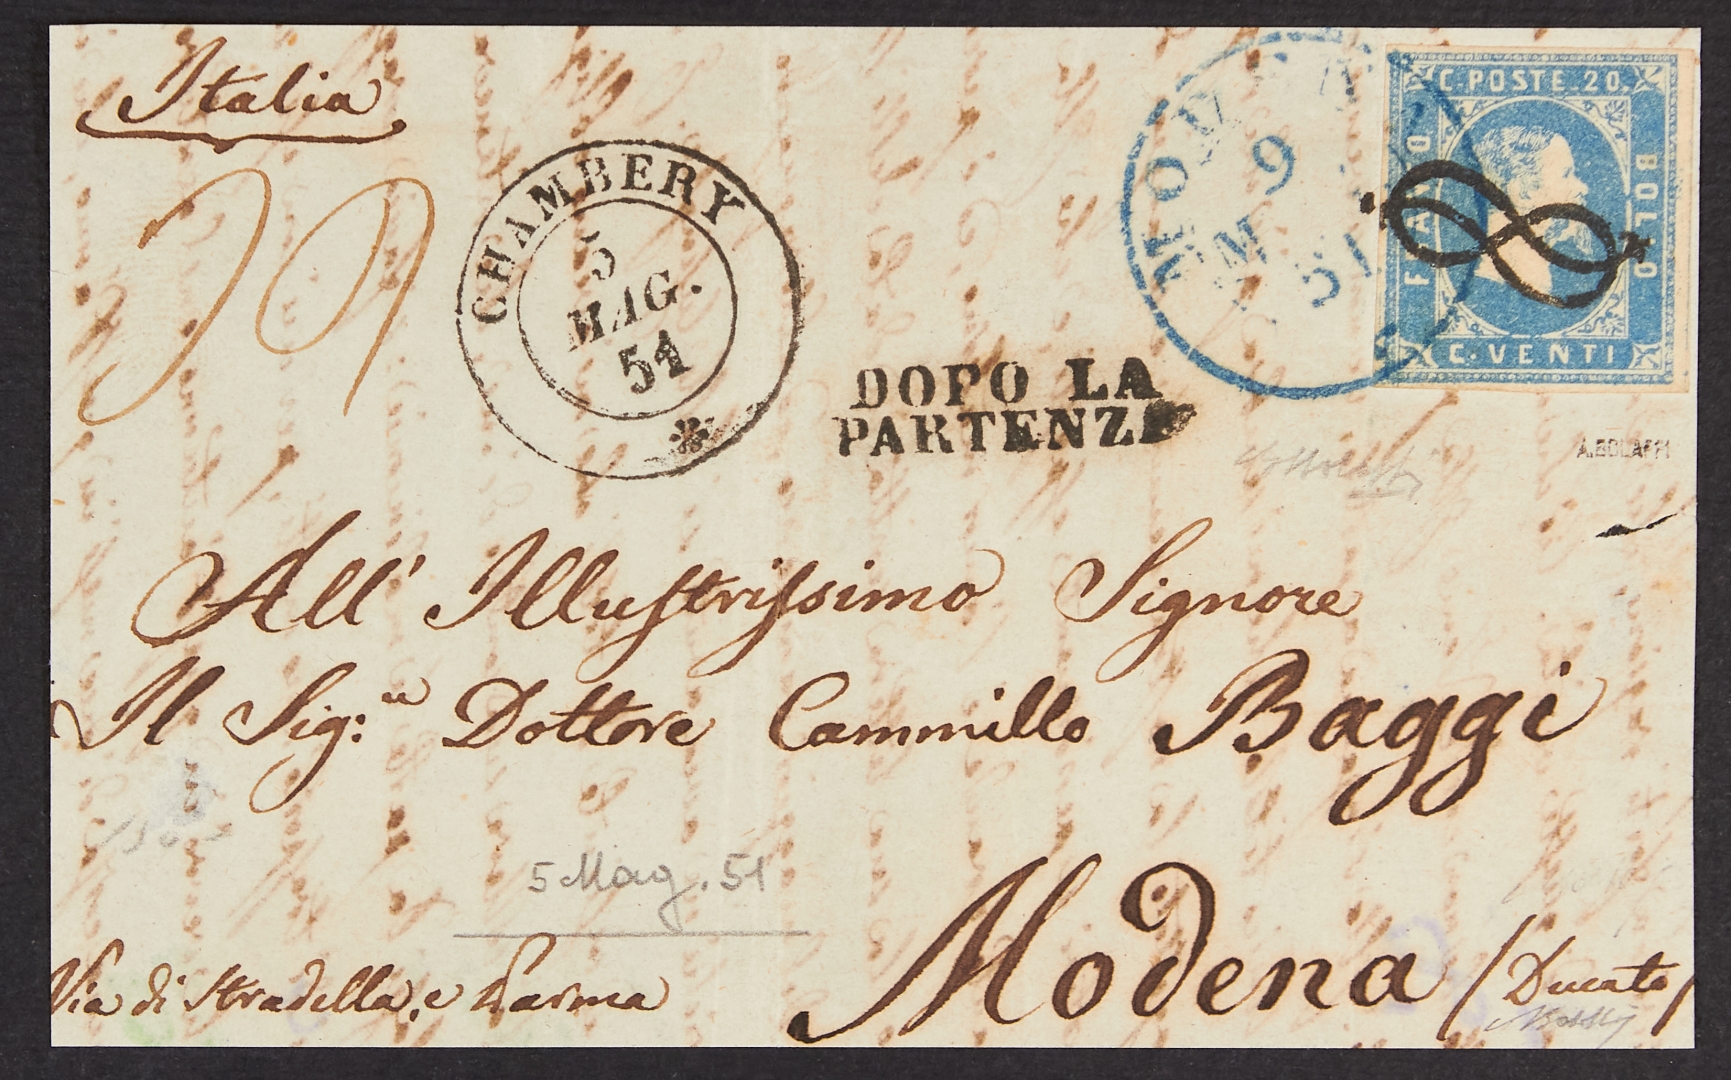 Italia
CHAMBERY
5
MAG.
51
DOPO LA
PARTENZA
MODENA
9
M
51
C. POSTE. 20.
FRANCO
BOLLO
C. VENTI
A. BOLAFFI
All' Illustrissimo Signore
Il Sig: Dottore Cammillo Baggi
5 Mag. 51
Modena (Ducato)
Via di Stradella, e Parma